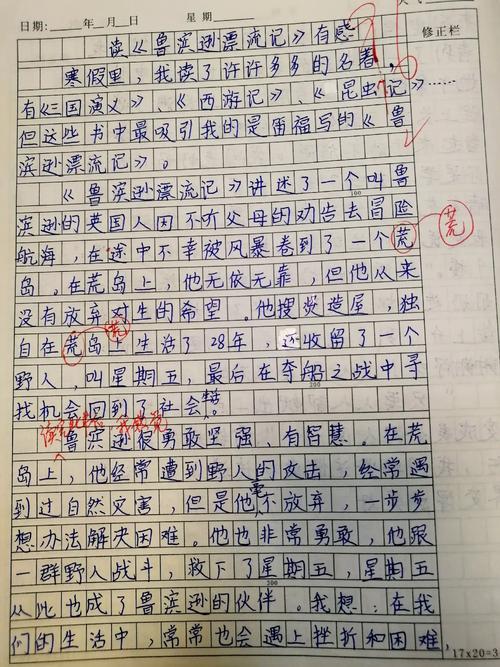 日期: 年 月 日 星期
修正栏
读《鲁滨逊漂流记》有感
寒假里，我读了许许多多的名著，
有《三国演义》、《西游记》、《昆虫记》……
但这些书中最吸引我的是笛福写的《鲁
滨逊漂流记》。
《鲁滨逊漂流记》讲述了一个叫鲁
100
滨逊的英国人因不听父母的劝告去冒险
航海，在途中不幸被风暴卷到了一个荒
荒
岛。在荒岛上，他无依无靠，但他从来
没有放弃对生的希望。他搜 造屋，独
荒
自在荒岛上生活了28年，还收留了一个
野人，叫星期五，最后在夺船之战中寻
200
找机会回到了社会。
鲁滨逊很勇敢坚强、有智慧。在荒
岛上，他经常遭到野人的攻击，经常遇
到过自然灾害，但是他毫不放弃，一步步
想办法解决困难。他也非常勇敢，他跟
一群野人战斗，救下了星期五，星期五
300
从此也成了鲁滨逊的伙伴。我想：在我
们的生活中，常常也会遇上挫折和困难，
17×20=3